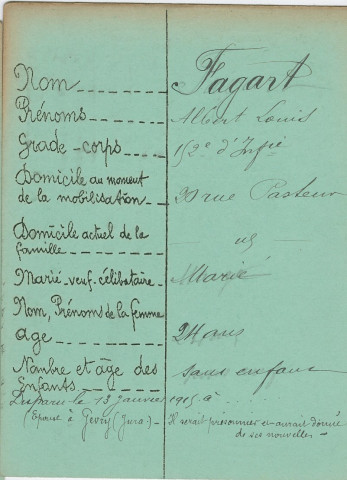 Nom Fagart
Prénoms Albert Louis
Grade-corps 152e d'Infie
Domicile au moment
de la mobilisation 20 rue Pasteur
Domicile actuel de la
famille id
Marié-veuf-célibataire Marié
Nom, Prénoms de la femme
âge 24 ans
Nombre et âge des
Enfants sans enfant
Disparu le 13 janvier 1915 à
(Epouse à Gevry (Jura) - Il serait prisonnier et aurait donné
de ses nouvelles -